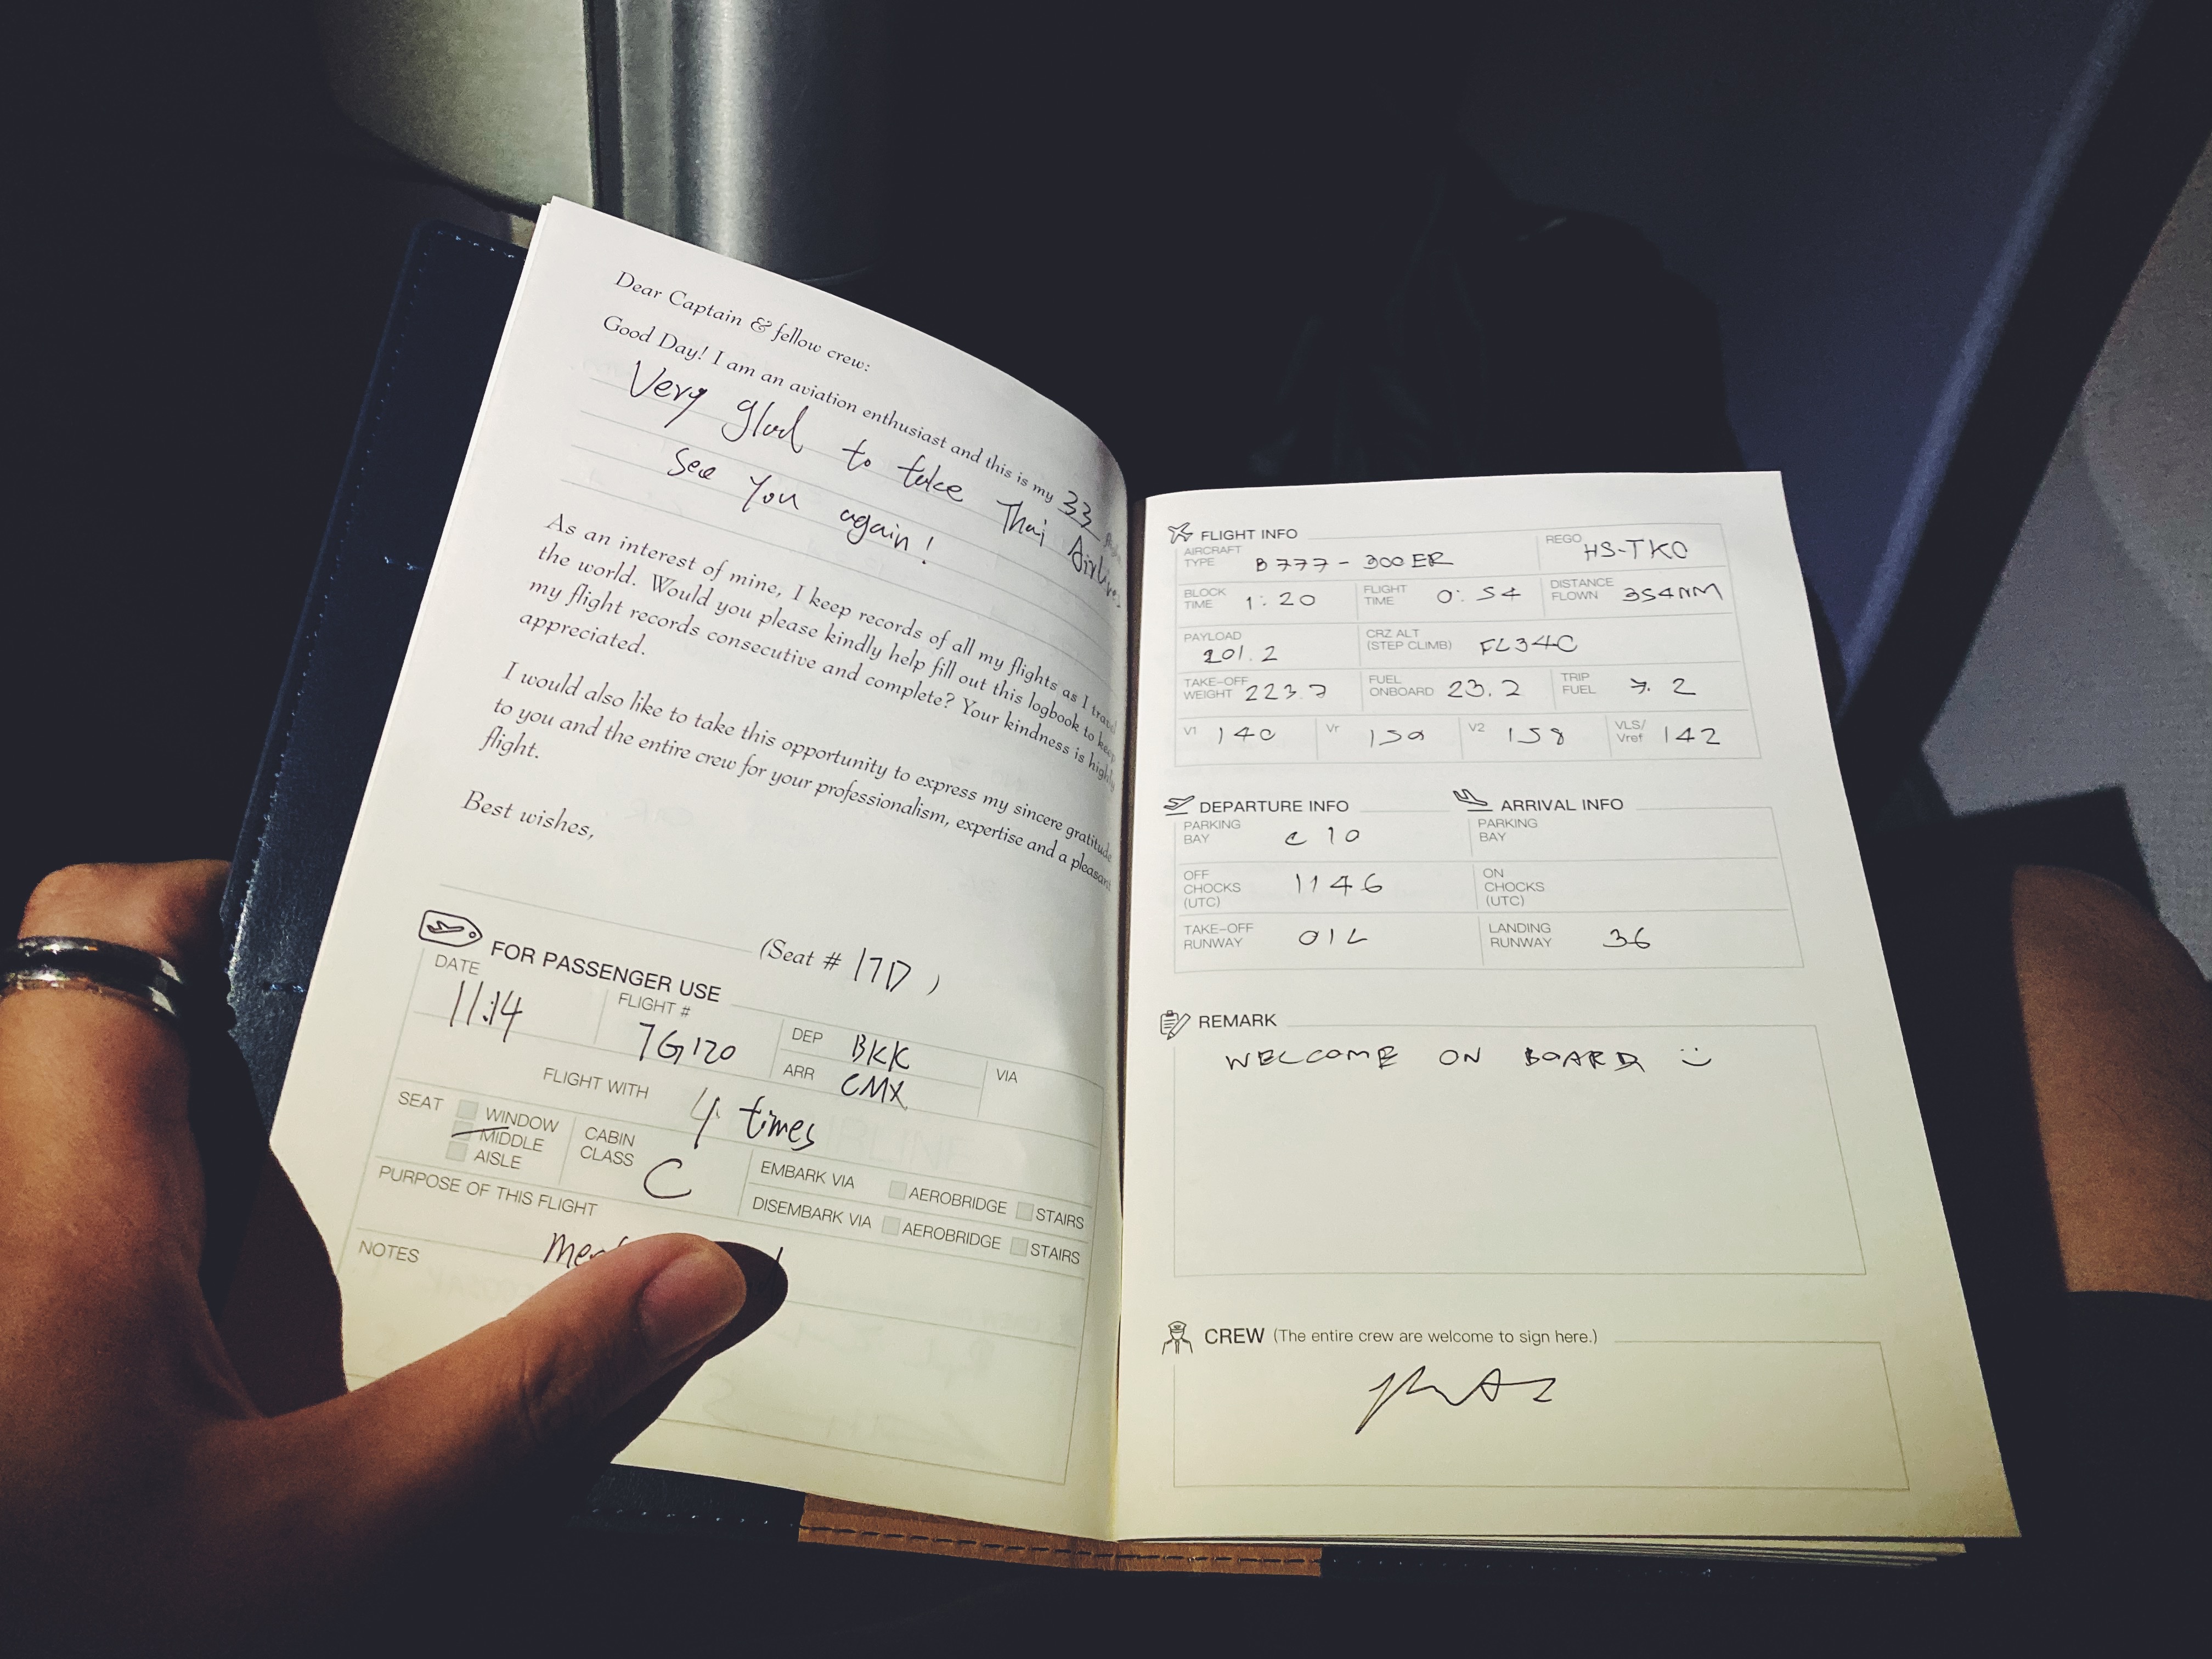 Dear Captain & fellow crew:
Good Day! I am an aviation enthusiast and this is my 33
Very glad to take Thai Airlines
See you again!
As an interest of mine, I keep records of all my flights as I travel
the world. Would you please kindly help fill out this logbook to keep
my flight records consecutive and complete? Your kindness is highly
appreciated.
I would also like to take this opportunity to express my sincere gratitude
to you and the entire crew for your professionalism, expertise and a pleasant
flight.
Best wishes,
(Seat # 17D )
FOR PASSENGER USE
DATE 11.14 FLIGHT # TG120 DEP BKK VIA
ARR CMX
FLIGHT WITH 4 times
SEAT WINDOW MIDDLE AISLE
CABIN CLASS C
EMBARK VIA AEROBRIDGE STAIRS
DISEMBARK VIA AEROBRIDGE STAIRS
PURPOSE OF THIS FLIGHT
NOTES
FLIGHT INFO
AIRCRAFT TYPE B777-300ER REGO HS-TKO
BLOCK TIME 1:20 FLIGHT TIME 0:54 DISTANCE FLOWN 354NM
PAYLOAD 201.2 CRZ ALT (STEP CLIMB) FL340
TAKE-OFF WEIGHT 223.7 FUEL ONBOARD 23.2 TRIP FUEL 7.2
V1 140 Vr V2 158 VLS/Vref 142
DEPARTURE INFO
PARKING BAY C10
OFF CHOCKS (UTC) 1146
TAKE-OFF RUNWAY 01L
ARRIVAL INFO
PARKING BAY
ON CHOCKS (UTC)
LANDING RUNWAY 36
REMARK
WELCOME ON BOARD :)
CREW (The entire crew are welcome to sign here.)